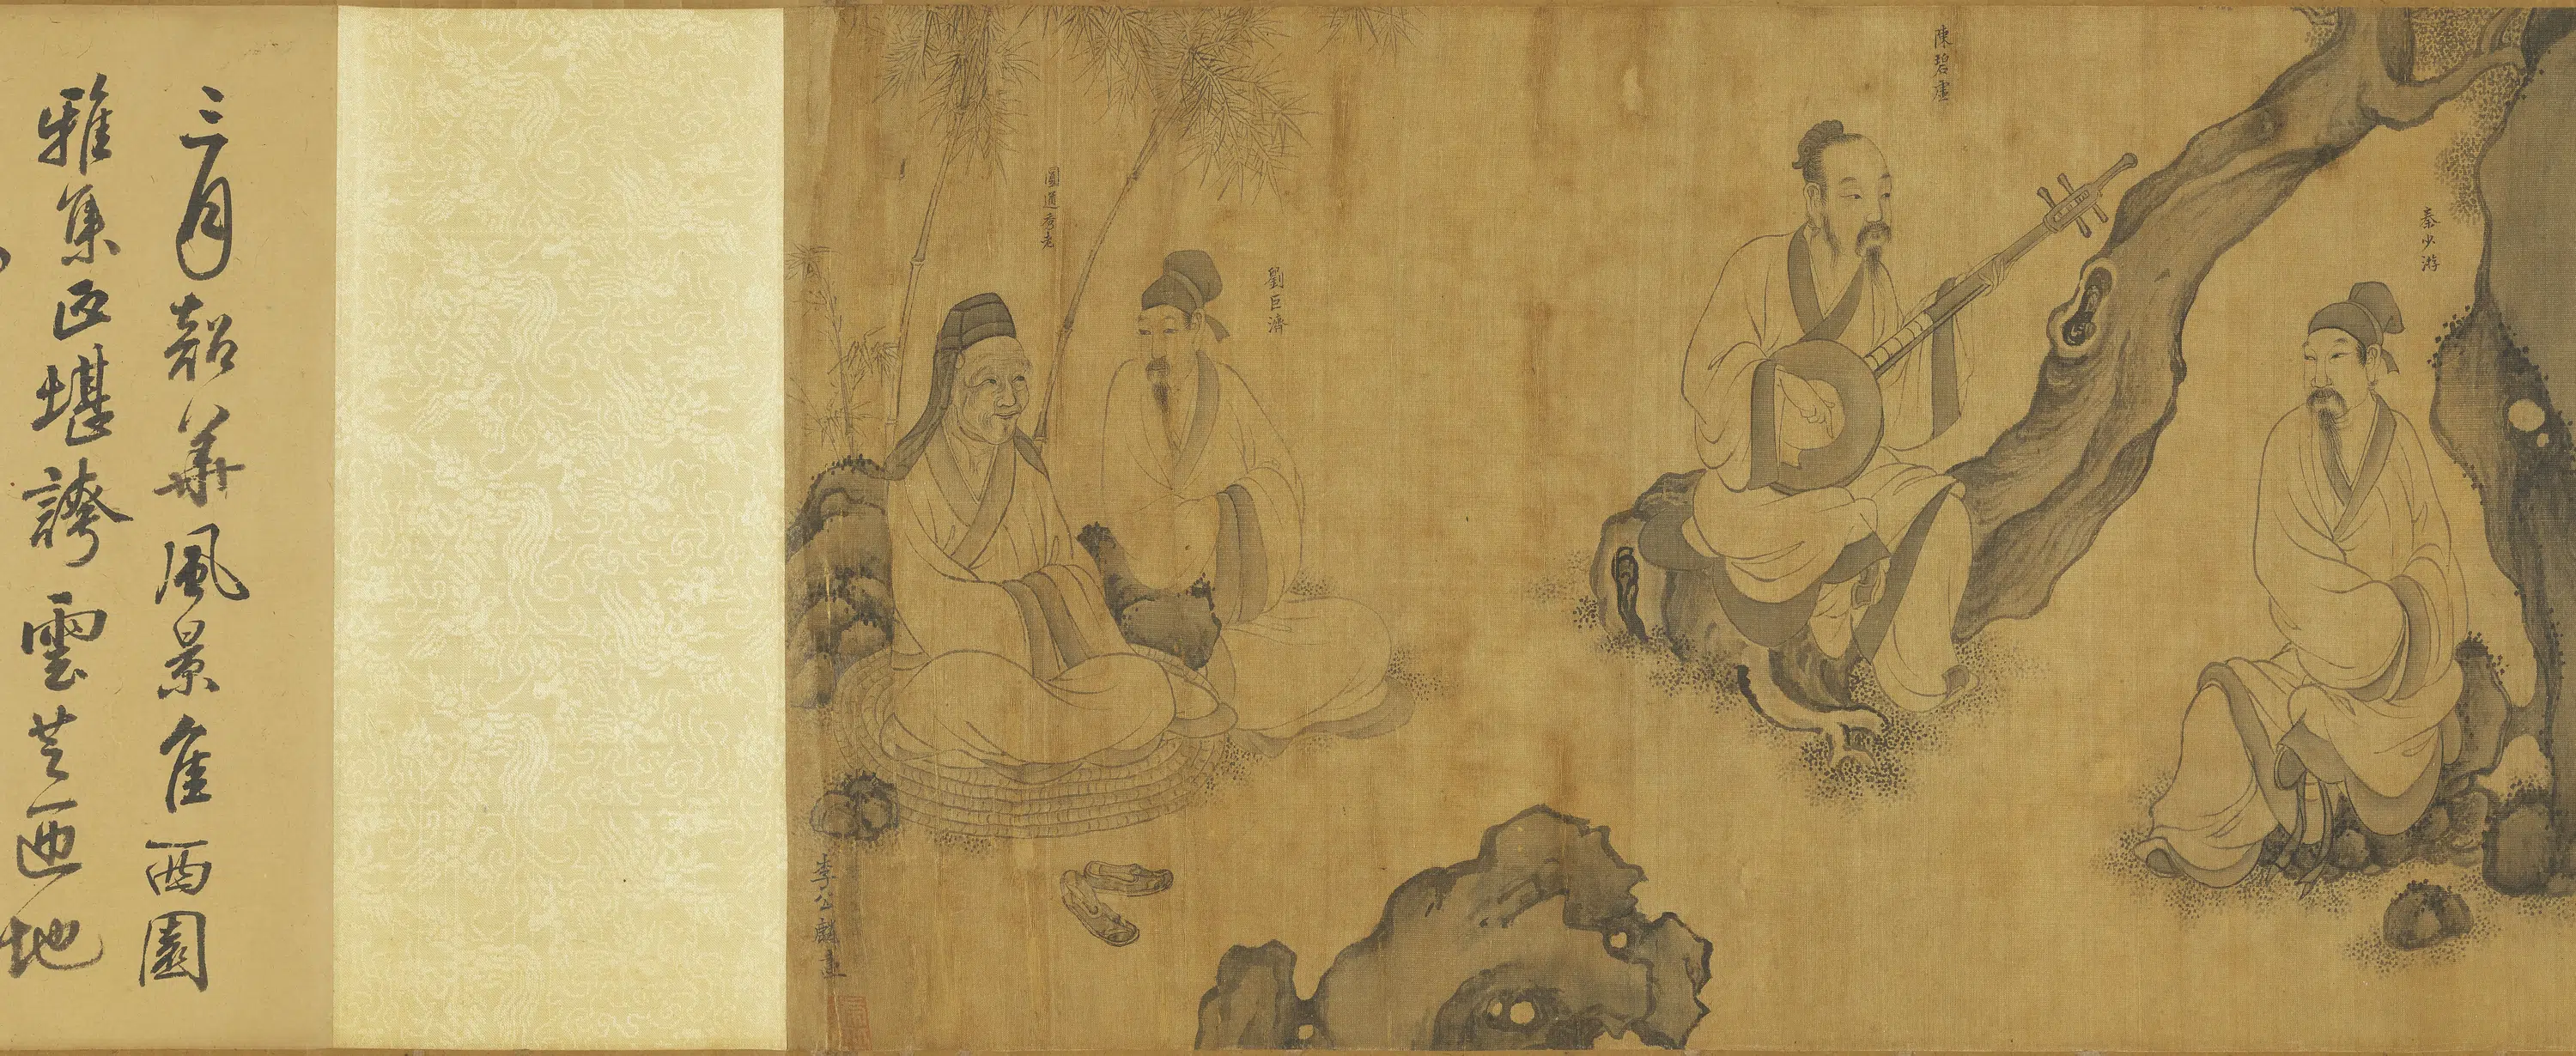 秦少游
陳碧虛
劉巨濟
圓通秀老
李公麟畫
三月韶華風景隹西園
雅集正堪誇雲芝匝地